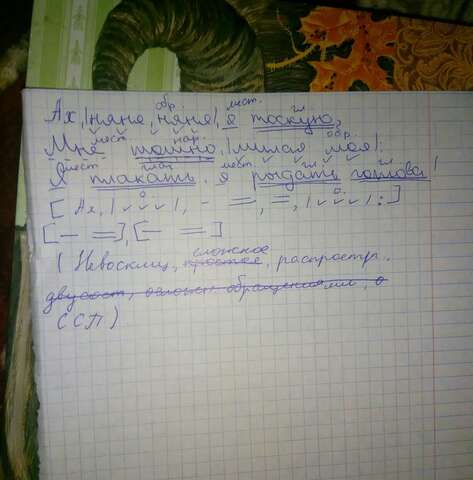 обр. мест. гл.
Ах, |няня, няня|, я тоскую,
мест. нар. обр.
Мне тошно, |милая моя|:
мест. глаг. мест. гл. гл.
Я плакать, я рыдать готова!
[ Ах, | о |, - =, =, | о | : ]
[ — = ], [ — = ]
сложное
( Невосклиц., простое, распростр.,
двусост, ослож обращениями, о
ССП )